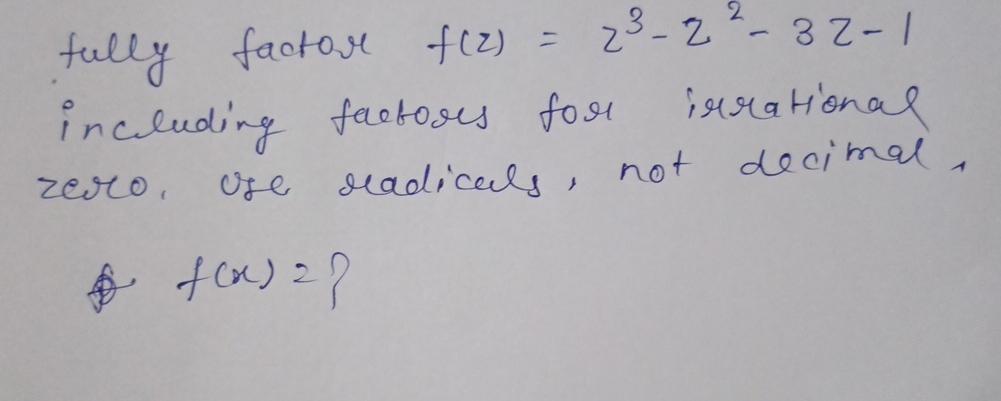 fully factor f(z) = z³ - z² - 3z - 1
including factors for irrational
zero. Use radicals, not decimal.
f(x) = ?